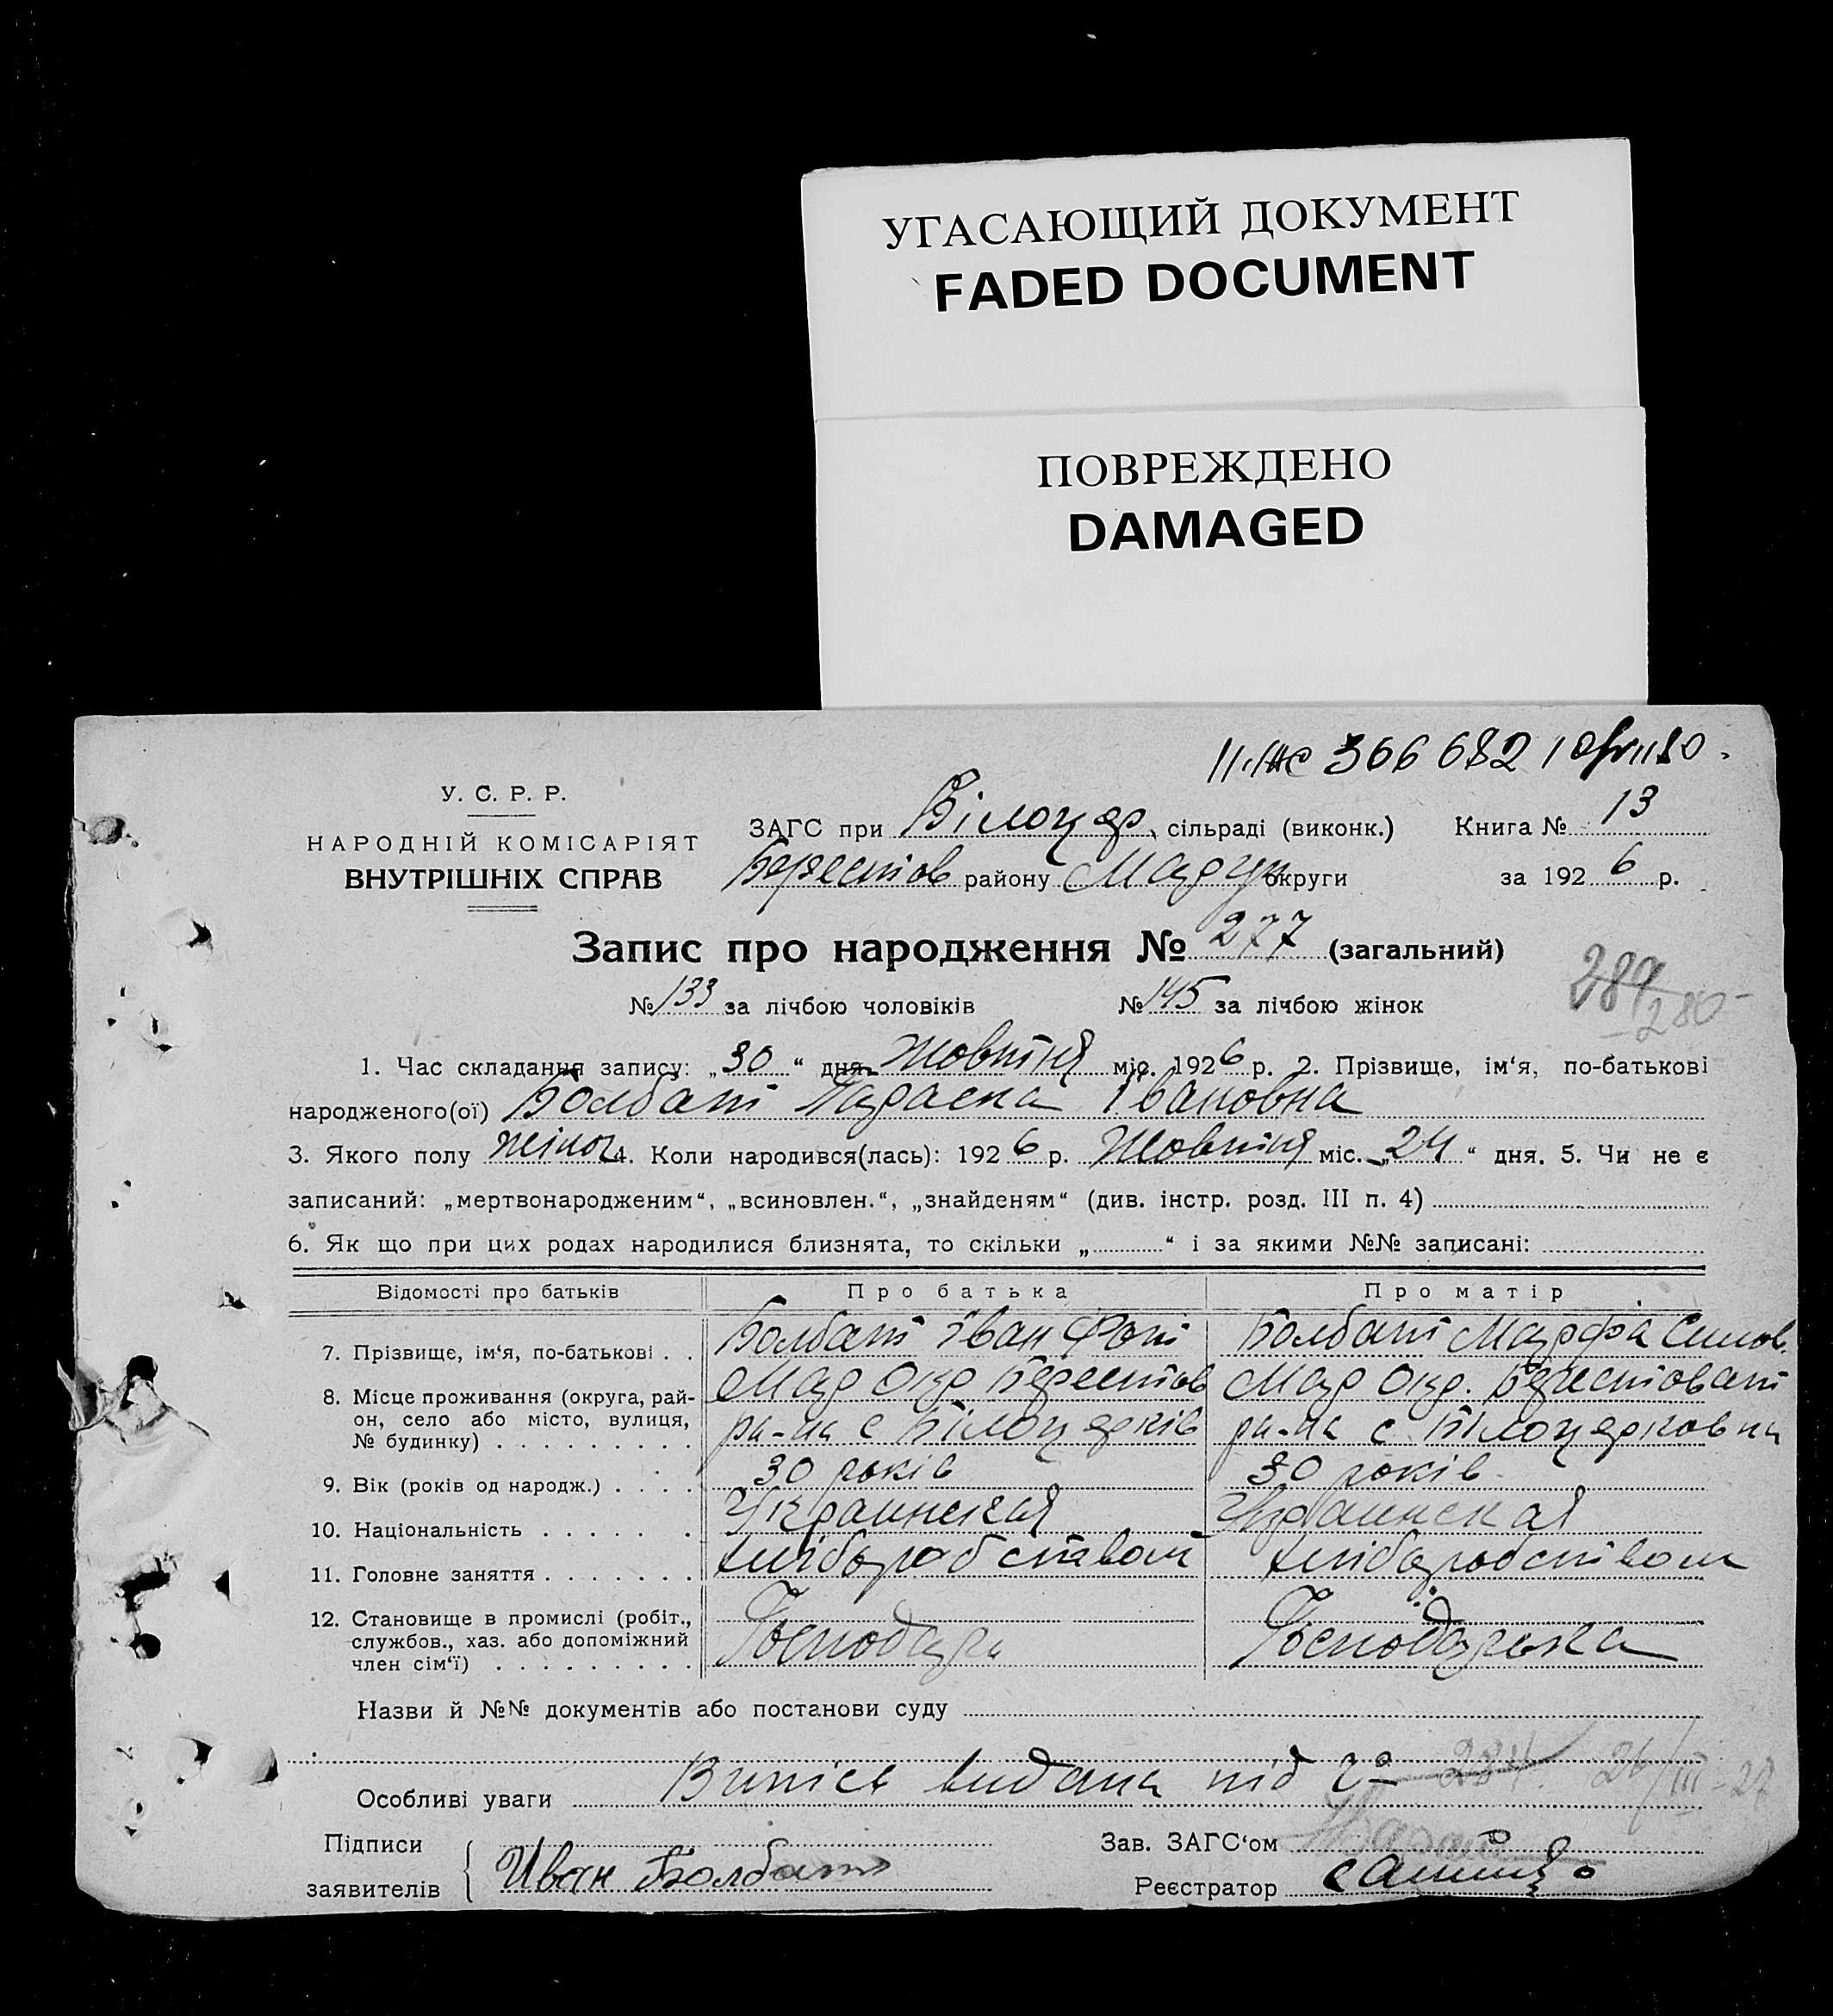 УГАСАЮЩИЙ ДОКУМЕНТ
FADED DOCUMENT
ПОВРЕЖДЕНО
DAMAGED
366682
У. С. Р. Р.
НАРОДНІЙ КОМІСАРІЯТ
ВНУТРІШНІХ СПРАВ
ЗАГС при Білоцер. сільраді (виконк.) Книга № 13
Берестов району Марун округи за 1926 р.
Запис про народження № 277 (загальний)
№ 133 за лічбою чоловіків № 145 за лічбою жінок
289
280
1. Час складання запису: „30“ дня Жовтня міс. 1926 р. 2. Прізвище, ім‘я, по-батькові
народженого(ої) Болбат Параска Івановна
3. Якого полу жіноч 4. Коли народився(лась): 1926 р. Жовтня міс. „24“ дня. 5. Чи не є
записаний: „мертвонародженим“, „всиновлен.“, „знайденям“ (див. інстр. розд. III п. 4)
6. Як що при цих родах народилися близнята, то скільки „ “ і за якими №№ записані:
Відомості про батьків Про батька Про матір
7. Прізвище, ім‘я, по-батькові . . Болбат Іван Фот Болбат Марфа Симов.
8. Місце проживання (округа, рай- Мар Окр Берестов Мар Окр. Берестоват
он, село або місто, вулиця, ра-на с Білоцерків ра-на с Білоцерковка
№ будинку) . . . . . . . . .
9. Вік (років од народж.) . . . . 30 років 30 років
10. Національність . . . . . . Украинская Украинская
11. Головне заняття . . . . . . . хліборобством хліборобством
12. Становище в промислі (робіт.,
службов., хаз. або допоміжний Господарь Господарька
член сім‘ї) . . . . . . . . .
Назви й №№ документів або постанови суду
Особливі уваги Випісь видана під № 234 26/III-27
Підписи Зав. ЗАГС‘ом
заявителів Иван Болбат Реєстратор